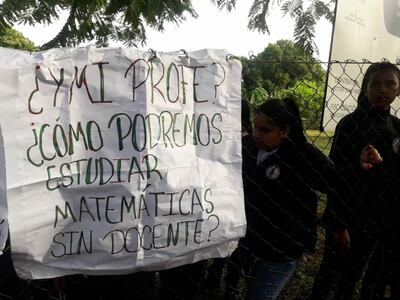 ¿Y MI PROFE?
¿CÓMO PODREMOS
ESTUDIAR
MATEMÁTICAS
SIN DOCENTE?